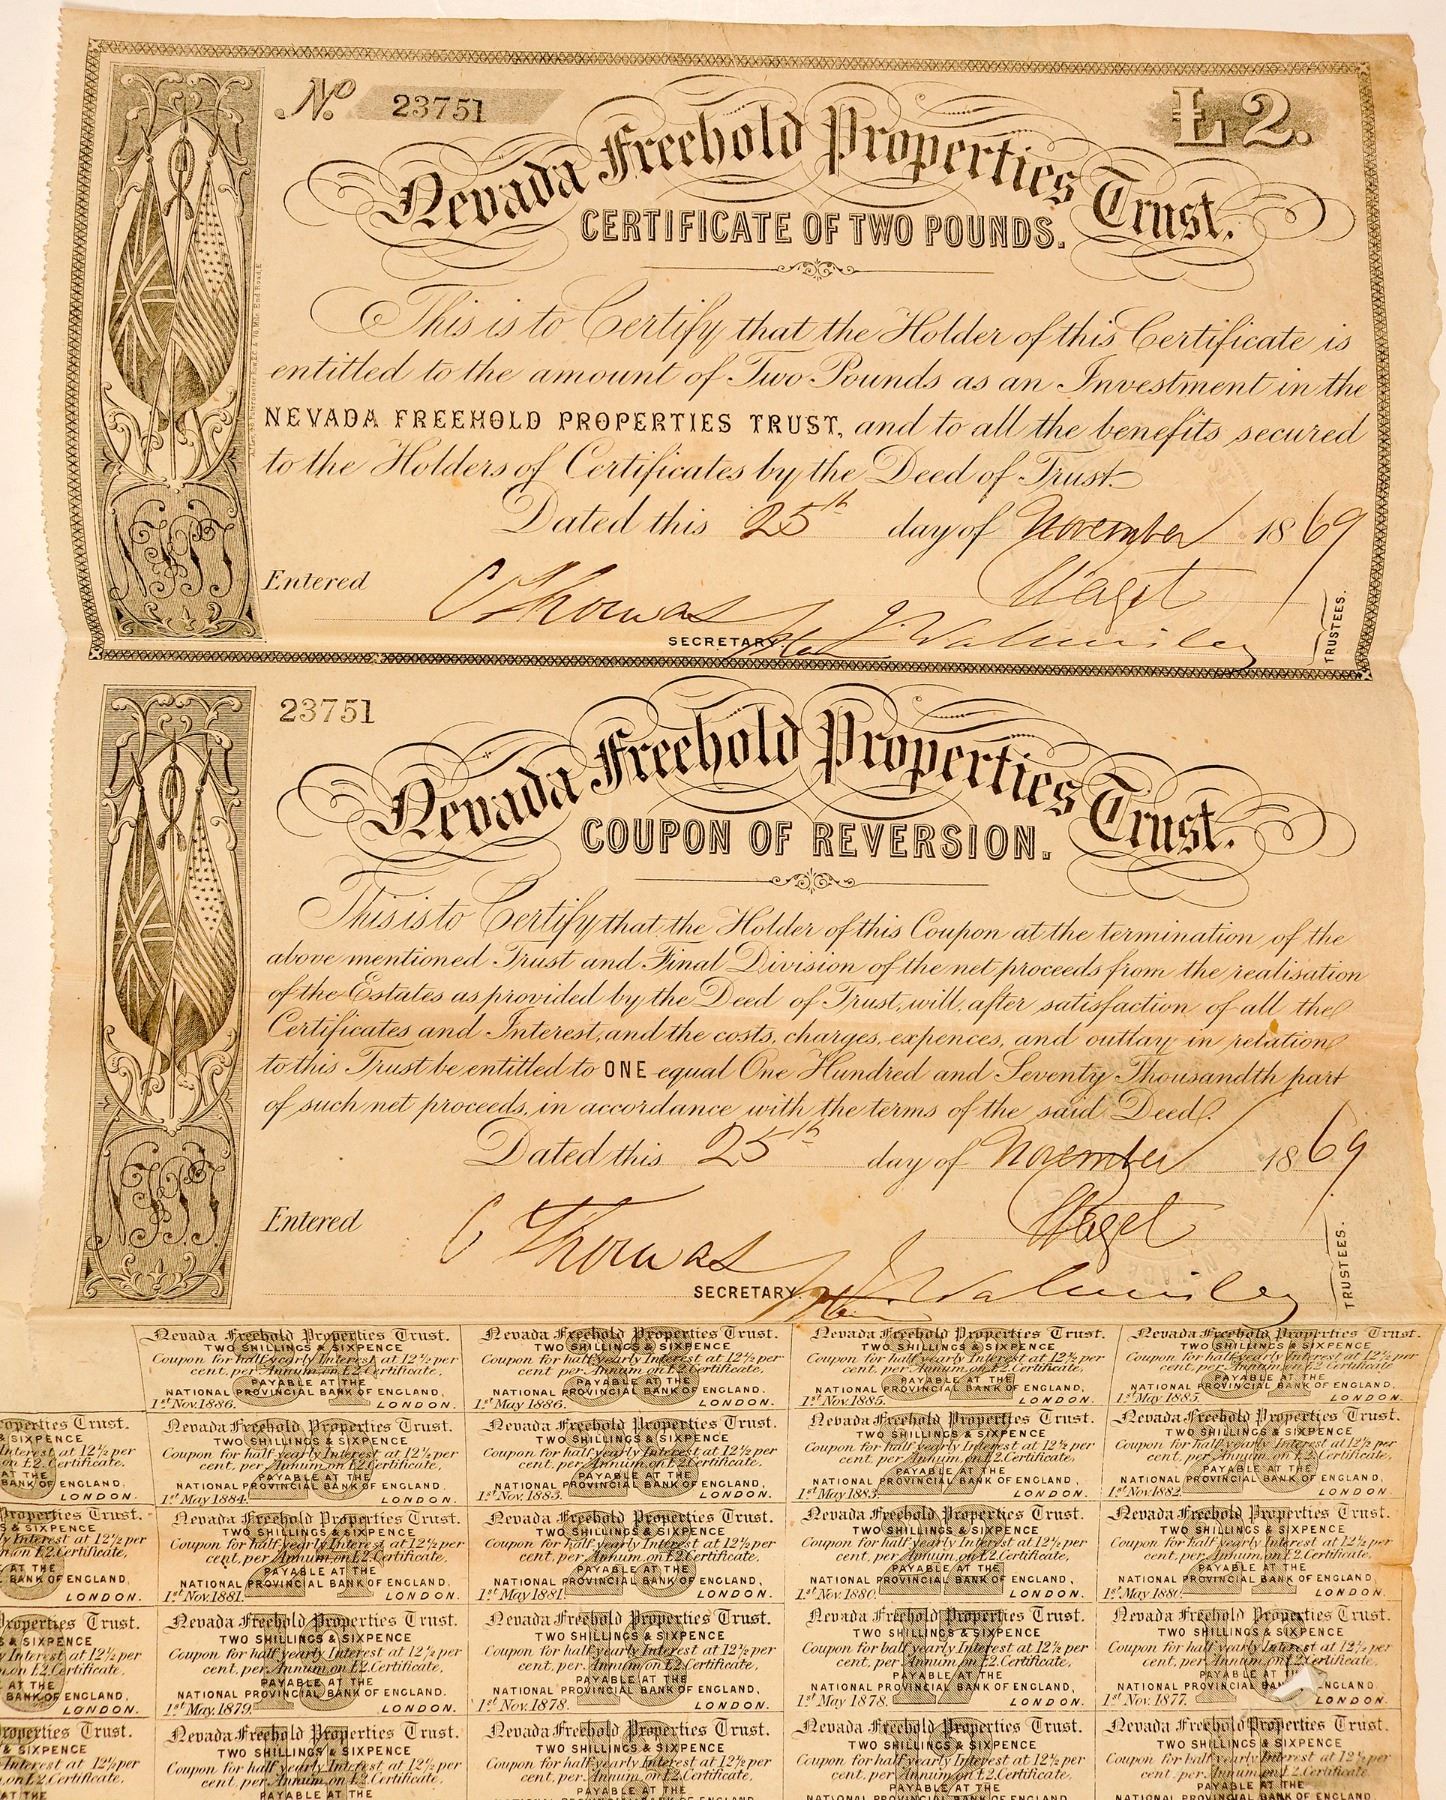 No. 23751 £2.
Nevada Freehold Properties Trust.
CERTIFICATE OF TWO POUNDS.
This is to Certify that the Holder of this Certificate is
entitled to the amount of Two Pounds as an Investment in the
NEVADA FREEHOLD PROPERTIES TRUST, and to all the benefits secured
to the Holders of Certificates by the Deed of Trust.
Dated this 25th day of November 1869
Entered C Thomas
SECRETARY.
TRUSTEES.
23751
Nevada Freehold Properties Trust.
COUPON OF REVERSION.
This is to Certify that the Holder of this Coupon at the termination of the
above mentioned Trust and Final Division of the net proceeds from the realisation
of the Estates as provided by the Deed of Trust, will, after satisfaction of all the
Certificates and Interest, and the costs, charges, expences, and outlay in relation
to this Trust be entitled to ONE equal One Hundred and Seventy Thousandth part
of such net proceeds, in accordance with the terms of the said Deed.
Dated this 25th day of November 1869
Entered C Thomas
SECRETARY.
TRUSTEES.
Nevada Freehold Properties Trust. Nevada Freehold Properties Trust. Nevada Freehold Properties Trust. Nevada Freehold Properties Trust.
TWO SHILLINGS & SIXPENCE TWO SHILLINGS & SIXPENCE TWO SHILLINGS & SIXPENCE TWO SHILLINGS & SIXPENCE
Coupon for half yearly Interest at 12½ per Coupon for half yearly Interest at 12½ per Coupon for half yearly Interest at 12½ per Coupon for half yearly Interest at 12½ per
cent. per Annum, on £2. Certificate, cent. per Annum, on £2. Certificate, cent. per Annum, on £2. Certificate, cent. per Annum, on £2. Certificate,
PAYABLE AT THE PAYABLE AT THE PAYABLE AT THE PAYABLE AT THE
NATIONAL PROVINCIAL BANK OF ENGLAND, NATIONAL PROVINCIAL BANK OF ENGLAND, NATIONAL PROVINCIAL BANK OF ENGLAND, NATIONAL PROVINCIAL BANK OF ENGLAND,
1st Nov. 1886. LONDON. 1st May 1886. LONDON. 1st Nov. 1885. LONDON. 1st May 1885. LONDON.
operties Trust. Nevada Freehold Properties Trust. Nevada Freehold Properties Trust. Nevada Freehold Properties Trust. Nevada Freehold Properties Trust.
& SIXPENCE TWO SHILLINGS & SIXPENCE TWO SHILLINGS & SIXPENCE TWO SHILLINGS & SIXPENCE TWO SHILLINGS & SIXPENCE
Interest at 12½ per Coupon for half yearly Interest at 12½ per Coupon for half yearly Interest at 12½ per Coupon for half yearly Interest at 12½ per Coupon for half yearly Interest at 12½ per
on £2. Certificate, cent. per Annum, on £2. Certificate, cent. per Annum, on £2. Certificate, cent. per Annum, on £2. Certificate, cent. per Annum, on £2. Certificate,
AT THE PAYABLE AT THE PAYABLE AT THE PAYABLE AT THE PAYABLE AT THE
BANK OF ENGLAND, NATIONAL PROVINCIAL BANK OF ENGLAND, NATIONAL PROVINCIAL BANK OF ENGLAND, NATIONAL PROVINCIAL BANK OF ENGLAND, NATIONAL PROVINCIAL BANK OF ENGLAND,
LONDON. 1st May 1884. LONDON. 1st Nov. 1883. LONDON. 1st May 1883. LONDON. 1st Nov. 1882. LONDON.
roperties Trust. Nevada Freehold Properties Trust. Nevada Freehold Properties Trust. Nevada Freehold Properties Trust. Nevada Freehold Properties Trust.
S & SIXPENCE TWO SHILLINGS & SIXPENCE TWO SHILLINGS & SIXPENCE TWO SHILLINGS & SIXPENCE TWO SHILLINGS & SIXPENCE
y Interest at 12½ per Coupon for half yearly Interest at 12½ per Coupon for half yearly Interest at 12½ per Coupon for half yearly Interest at 12½ per Coupon for half yearly Interest at 12½ per
on £2. Certificate, cent. per Annum, on £2. Certificate, cent. per Annum, on £2. Certificate, cent. per Annum, on £2. Certificate, cent. per Annum, on £2. Certificate,
AT THE PAYABLE AT THE PAYABLE AT THE PAYABLE AT THE PAYABLE AT THE
BANK OF ENGLAND, NATIONAL PROVINCIAL BANK OF ENGLAND, NATIONAL PROVINCIAL BANK OF ENGLAND, NATIONAL PROVINCIAL BANK OF ENGLAND, NATIONAL PROVINCIAL BANK OF ENGLAND,
LONDON. 1st Nov. 1881. LONDON. 1st May 1881. LONDON. 1st Nov. 1880. LONDON. 1st May 1880. LONDON.
roperties Trust. Nevada Freehold Properties Trust. Nevada Freehold Properties Trust. Nevada Freehold Properties Trust. Nevada Freehold Properties Trust.
S & SIXPENCE TWO SHILLINGS & SIXPENCE TWO SHILLINGS & SIXPENCE TWO SHILLINGS & SIXPENCE TWO SHILLINGS & SIXPENCE
y Interest at 12½ per Coupon for half yearly Interest at 12½ per Coupon for half yearly Interest at 12½ per Coupon for half yearly Interest at 12½ per Coupon for half yearly Interest at 12½ per
on £2. Certificate, cent. per Annum, on £2. Certificate, cent. per Annum, on £2. Certificate, cent. per Annum, on £2. Certificate, cent. per Annum, on £2. Certificate,
AT THE PAYABLE AT THE PAYABLE AT THE PAYABLE AT THE PAYABLE AT TH
BANK OF ENGLAND, NATIONAL PROVINCIAL BANK OF ENGLAND, NATIONAL PROVINCIAL BANK OF ENGLAND, NATIONAL PROVINCIAL BANK OF ENGLAND, NATIONAL PROVINCIAL BANK ENGLAND,
LONDON. 1st May 1879. LONDON. 1st Nov. 1878. LONDON. 1st May 1878. LONDON. 1st Nov. 1877. LONDON.
roperties Trust. Nevada Freehold Properties Trust. Nevada Freehold Properties Trust. Nevada Freehold Properties Trust. Nevada Freehold Properties Trust.
& SIXPENCE TWO SHILLINGS & SIXPENCE TWO SHILLINGS & SIXPENCE TWO SHILLINGS & SIXPENCE TWO SHILLINGS & SIXPENCE
Interest at 12½ per Coupon for half yearly Interest at 12½ per Coupon for half yearly Interest at 12½ per Coupon for half yearly Interest at 12½ per Coupon for half yearly Interest at 12½ per
on £2. Certificate, cent. per Annum, on £2. Certificate, cent. per Annum, on £2. Certificate, cent. per Annum, on £2. Certificate, cent. per Annum, on £2. Certificate,
AT THE PAYABLE AT THE PAYABLE AT THE PAYABLE AT THE PAYABLE AT THE